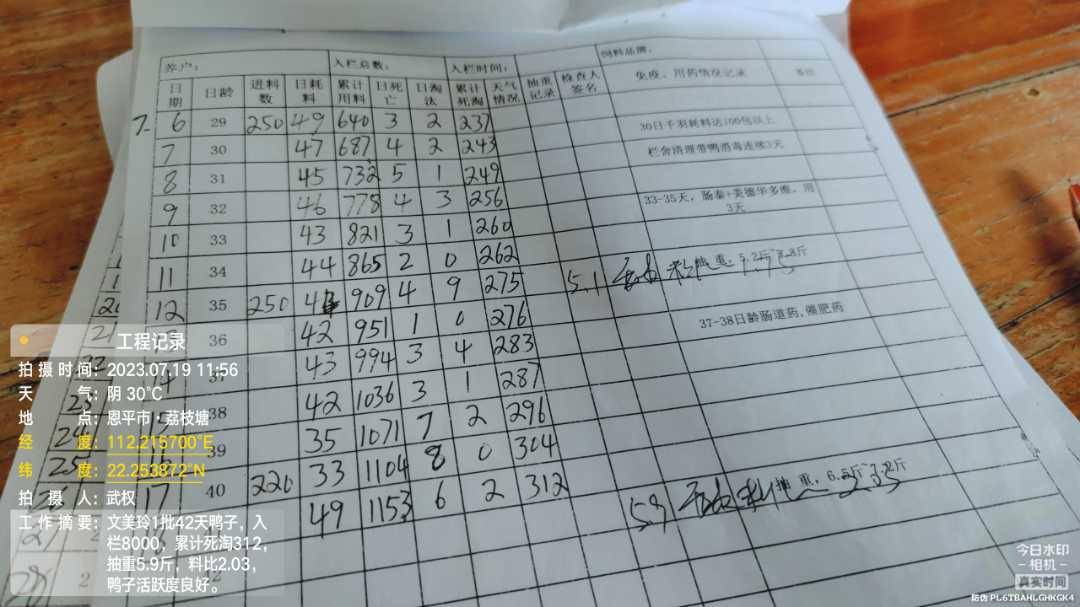 养户： 入栏总数： 入栏时间： 饲料品牌：
日期 日龄 进料数 日耗料 累计用料 日死亡 日淘汰 累计死淘 天气情况 抽重记录 检查人签名 免疫、用药情况记录 备注
7. 6 29 250 49 640 3 2 237 30日千羽耗料达100包以上
7 30 47 687 4 2 243 栏舍清理带鸭消毒连续3天
8 31 45 732 5 1 249
9 32 46 778 4 3 256 33-35天，肠泰+美德华多维，用3天
10 33 43 821 3 1 260
11 34 44 865 2 0 262
12 35 250 909 4 9 275 5.1 抽重：5.2斤
36 42 951 1 0 276 37-38日龄肠道药，催肥药
37 43 994 3 4 283
38 42 1036 3 1 287
39 35 1071 7 2 296
40 220 33 1104 8 0 304
49 1153 6 2 312 5.9 抽重：
工程记录
拍摄时间：2023.07.19 11:56
天 气：阴 30°C
地 点：恩平市·荔枝塘
经 度：112.215700°E
纬 度：22.253872°N
拍 摄 人：武权
工作摘要：文美玲1批42天鸭子，入
栏8000，累计死淘312，
抽重5.9斤，料比2.03，
鸭子活跃度良好。
今日水印
-相机-
真实时间
防伪 PL6TBAHLGHKGK4